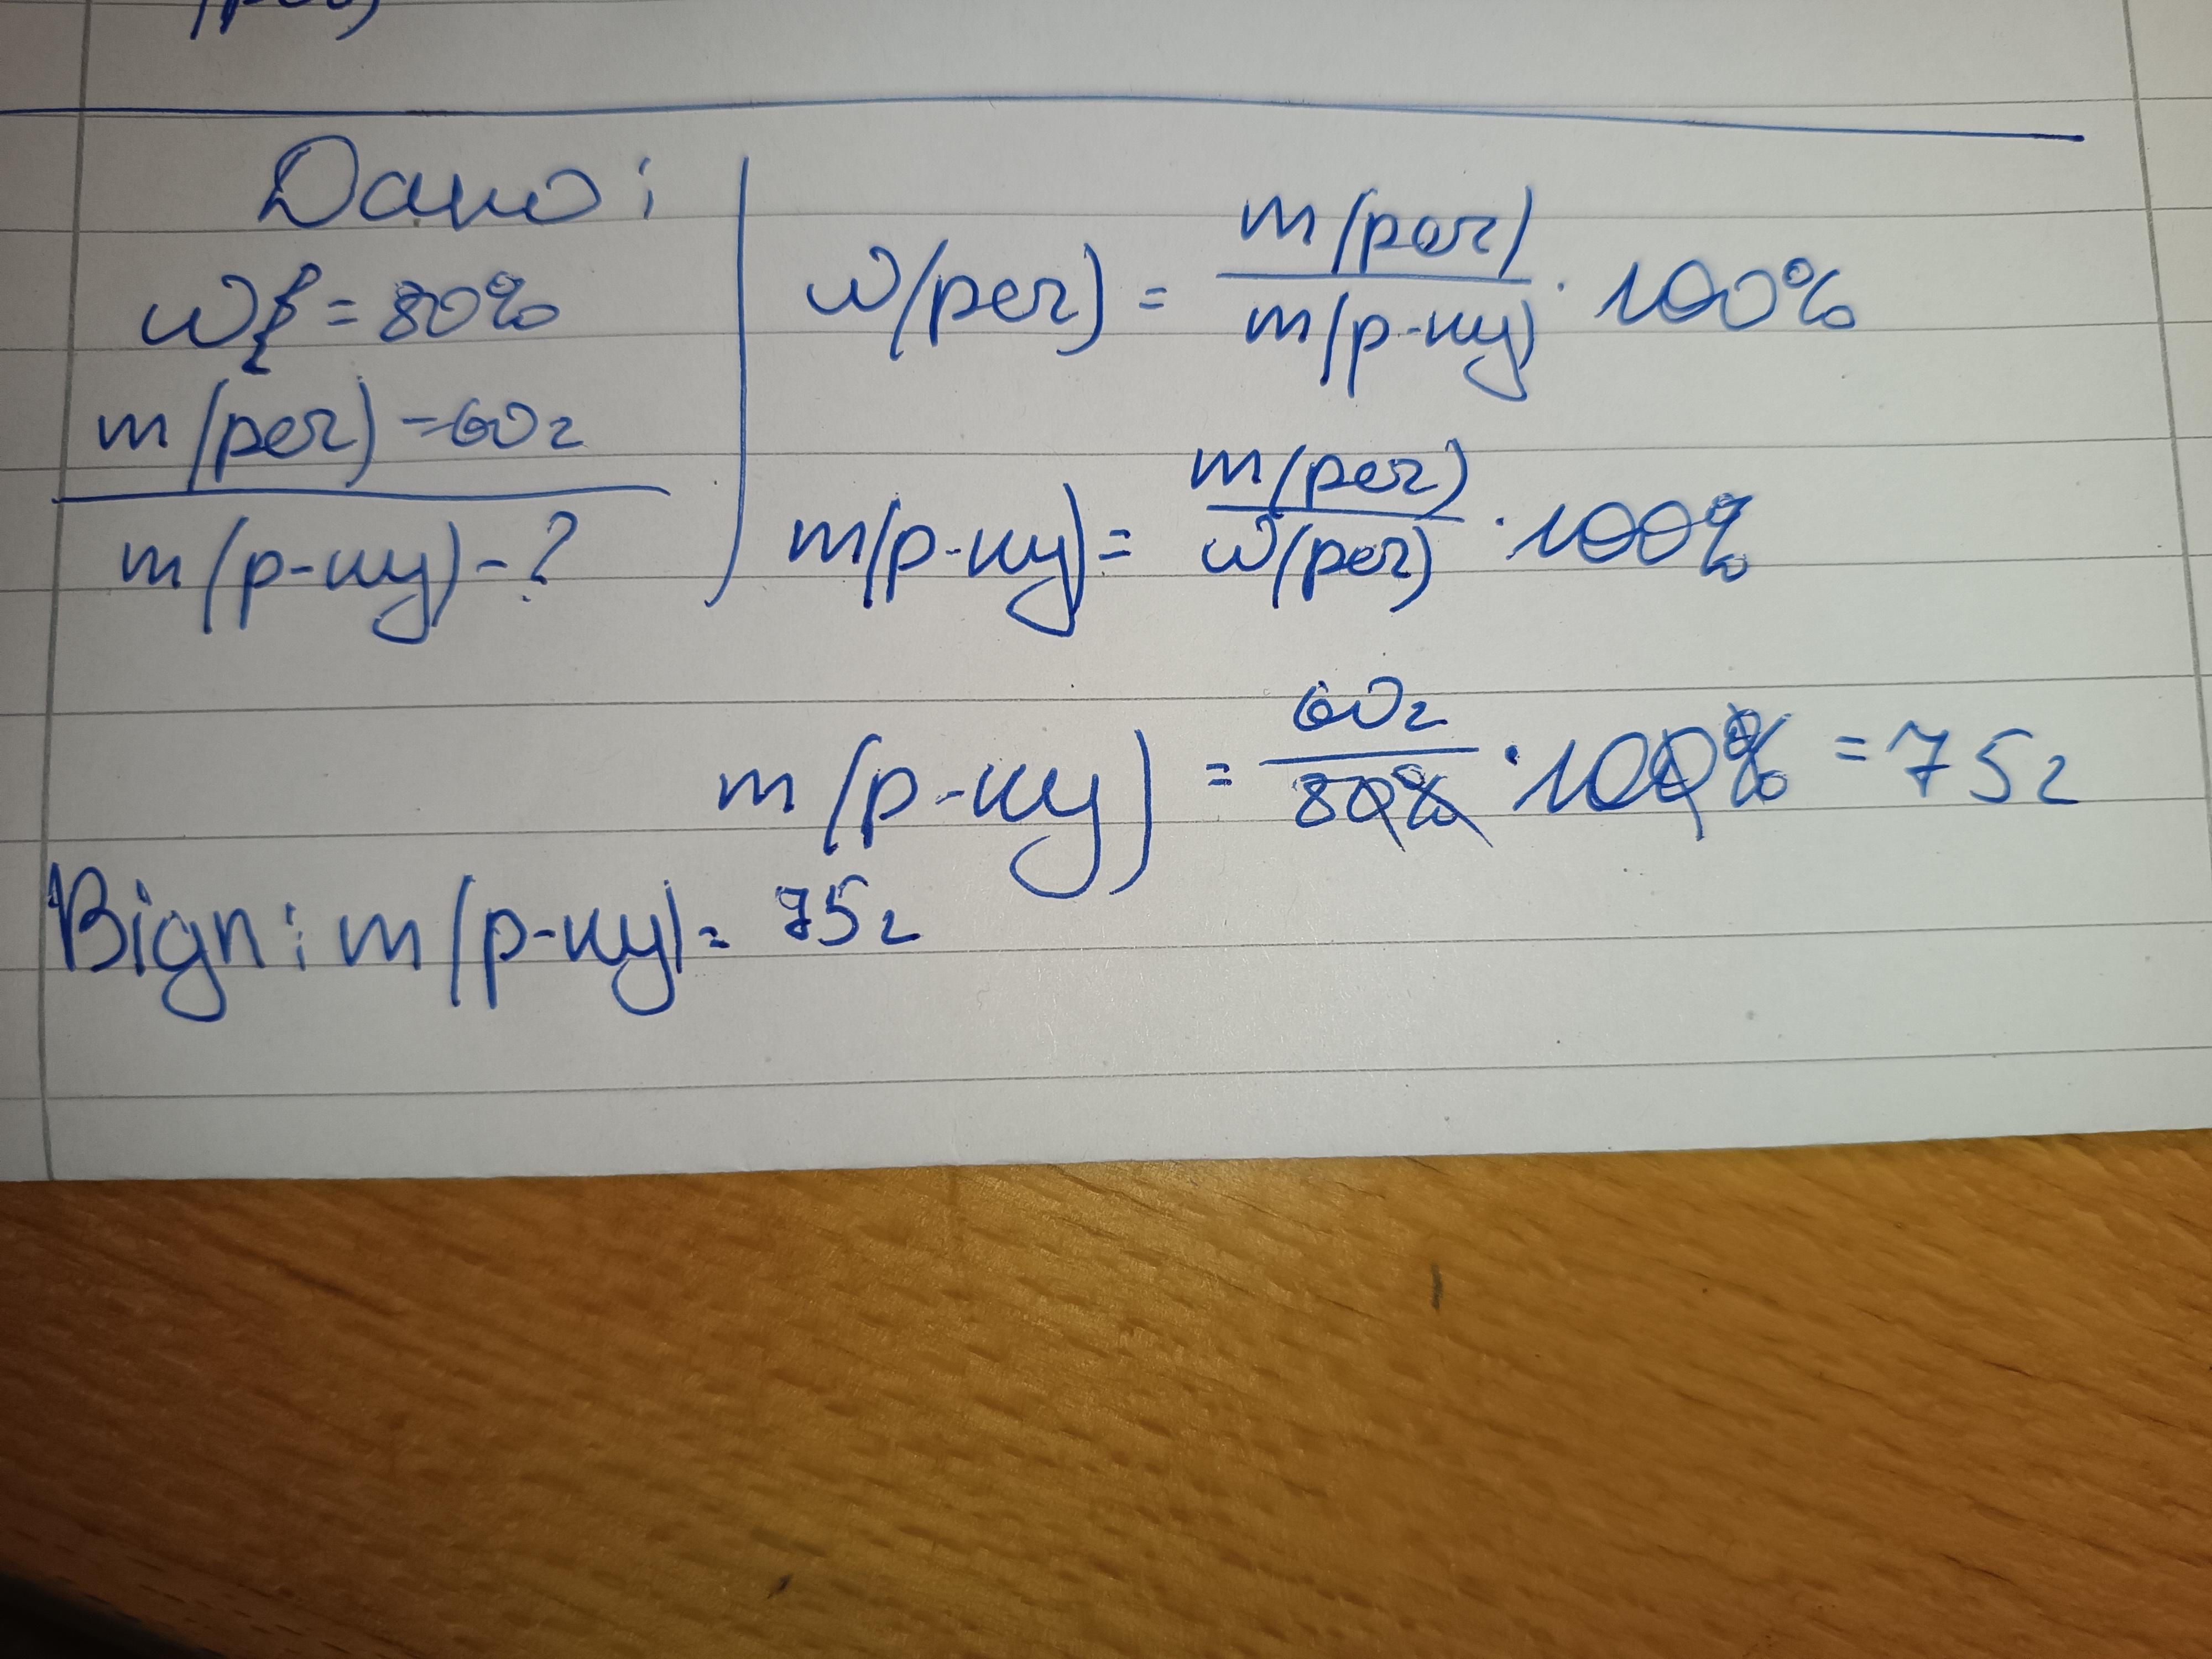 Дано:
w = 80%
m(реч) = 60г
m(р-ну) - ?
w(реч) = m(реч) / m(р-ну) · 100%
m(р-ну) = m(реч) / w(реч) · 100%
m(р-ну) = 60г / 80% · 100% = 75г
Відп: m(р-ну) = 75г